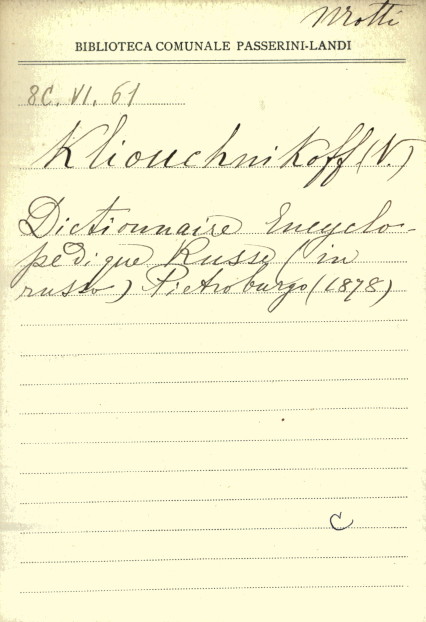 BIBLIOTECA COMUNALE PASSERINI-LANDI
8C. VI. 61
Kliouchnikoff (V.)
Dictionnaire Encyclo-
pédique Russe (in
russo) Pietroburgo (1878)
C